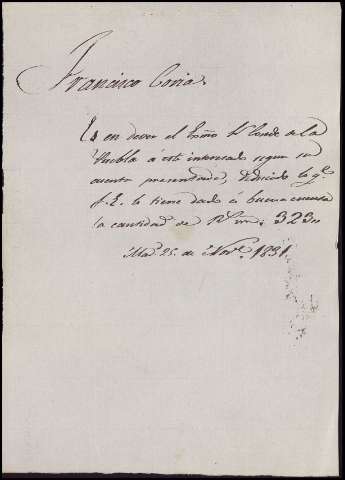 Francisco Coria.
Es en dever el Exmo Sr Conde de la
Puebla á este interesado segun su
cuenta presentada, deducido lo qe.
S. E. le tiene dado á buena cuenta
la cantidad de Rs vn. 323..
Mad. 25. de Nove. 1831